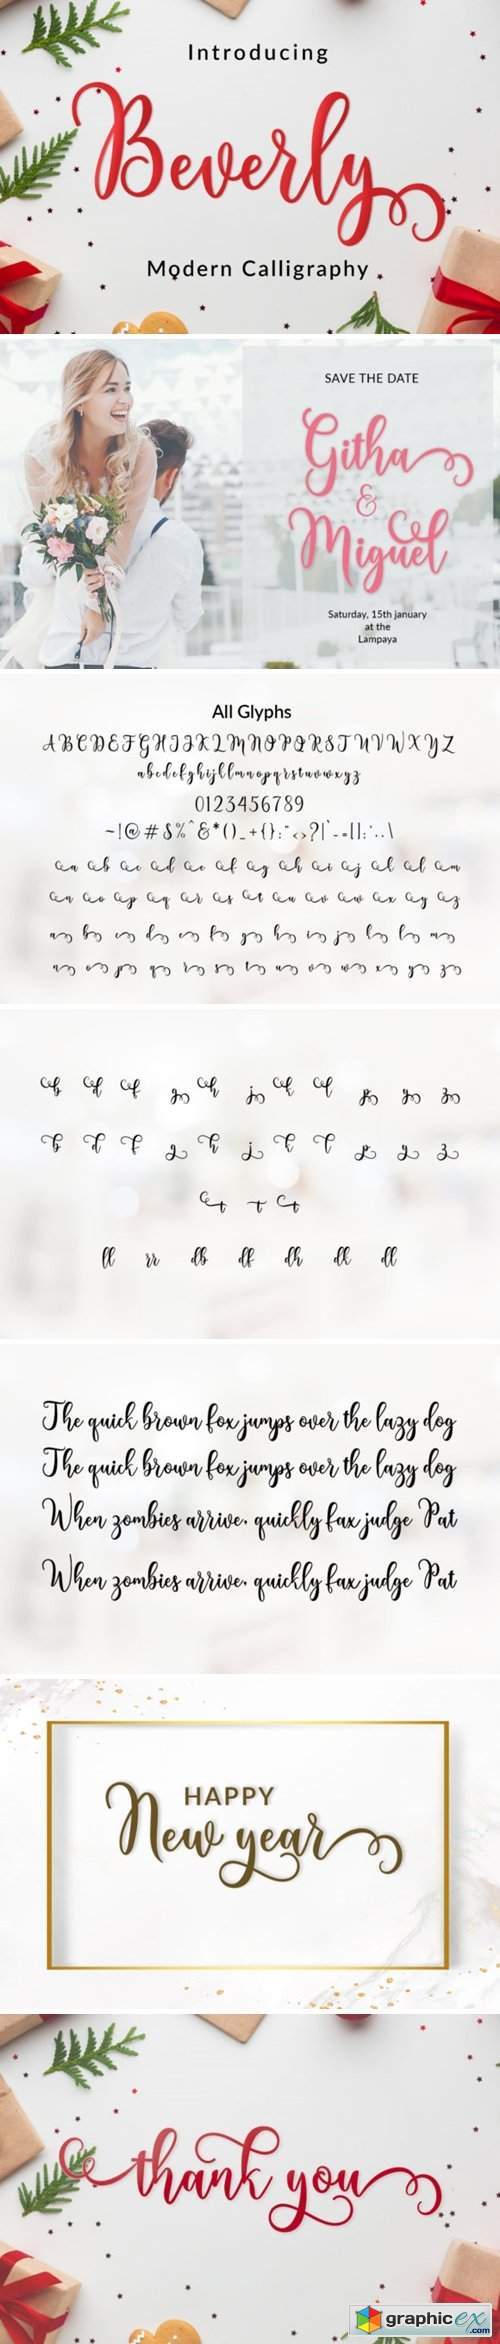 Introducing
Beverly
Modern Calligraphy
SAVE THE DATE
Githa
&
Miguel
Saturday, 15th january
at the
Lampaya
All Glyphs
A B C D E F G H I J K L M N O P Q R S T U V W X Y Z
a b c d e f g h i j k l m n o p q r s t u v w x y z
0123456789
~!@#$%^&*()_+{}:"<>?|`-=[];',.\
a b c d e f g h i j k l m
n o p q r s t u v w x y z
a b c d e f g h i j k l m
n o p q r s t u v w x y z
b d f g h j k l p y z
b d f g h j k l p y z
t t t
ll rr db df dh dk dl
The quick brown fox jumps over the lazy dog
The quick brown fox jumps over the lazy dog
When zombies arrive, quickly fax judge Pat
When zombies arrive, quickly fax judge Pat
HAPPY
New year
thank you
graphicex
.com